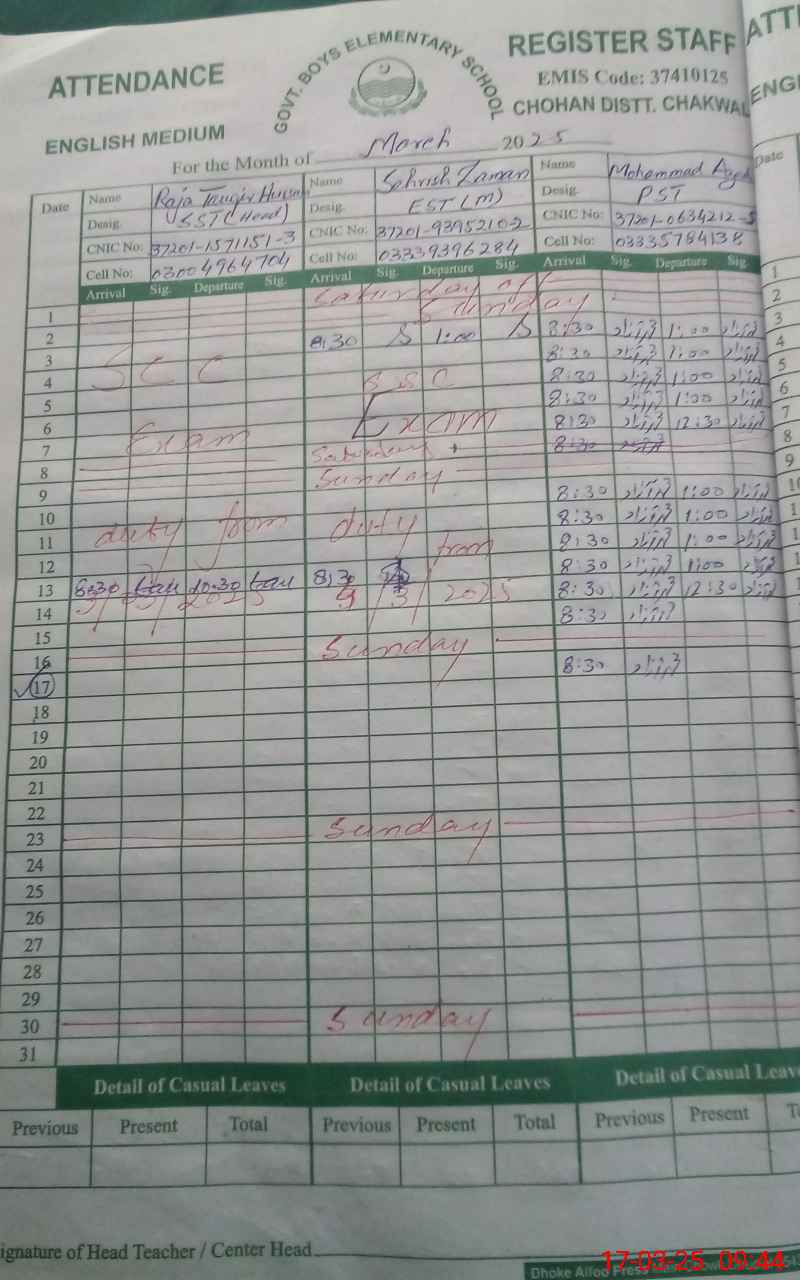 ATTENDANCE
GOVT. BOYS ELEMENTARY SCHOOL
REGISTER STAFF
ATTE
EMIS Code: 37410125
ENGLISH MEDIUM
CHOHAN DISTT. CHAKWAL
ENGL
For the Month of March 2025
Date
Name Raja Tanqir Hussain Name Sehrish Zaman Name Mohammad
Date
Desig. SST (Head) Desig. EST (M) Desig. PST
CNIC No: 37201-1571151-3 CNIC No: 37201-9395210-2 CNIC No: 37201-0634212-5
Cell No: 03004964704 Cell No: 03339396284 Cell No: 03335784138
Arrival Sig. Departure Sig. Arrival Sig. Departure Sig. Arrival Sig. Departure Sig.
1 Saturday off
2 Sunday
3 8:30 S 1:00 S 8:30 1:00
4 SCC SSC 8:30 1:00
5 8:30 1:00
6 Exam 8:30 1:00
7 Exam 8:30 12:30
8 Saturday 8:30
9 Sunday
10 duty from duty 8:30 1:00
11 from 8:30 1:00
12 8:30 1:00
13 8:30 10:30 8:30 8:30 1:00
3/3/2025 3/3/2025
14 8:30 12:30
15 8:30
16 Sunday
17 8:30
18
19
20
21
22
23 Sunday
24
25
26
27
28
29
30 Sunday
31
Detail of Casual Leaves Detail of Casual Leaves Detail of Casual Leave
Previous Present Total Previous Present Total Previous Present
ignature of Head Teacher / Center Head
17-03-25 09:44
Dhoke Alfoo Press